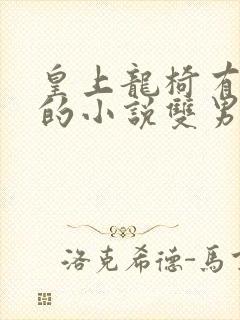 皇上龍椅有
的小說雙男
洛克希德-馬